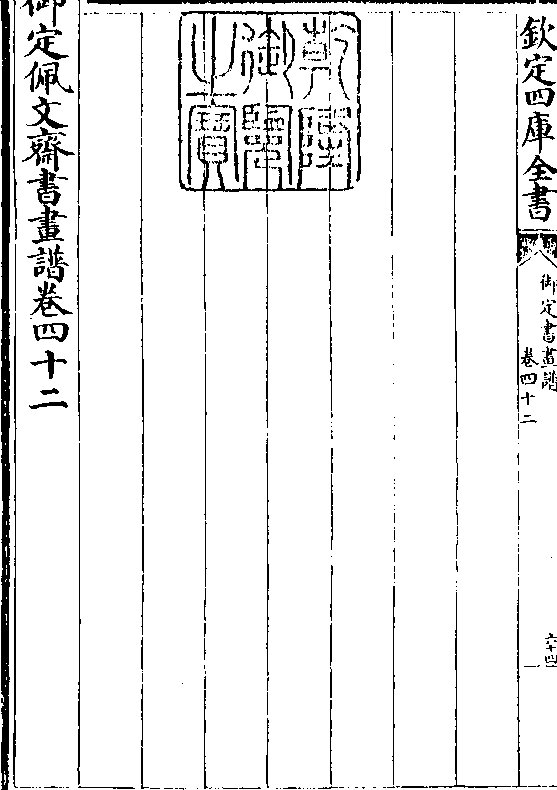 欽定四庫全書
御定書畫譜
卷四十二
六十四
乾隆御覽之寶
御定佩文齋書畫譜卷四十二